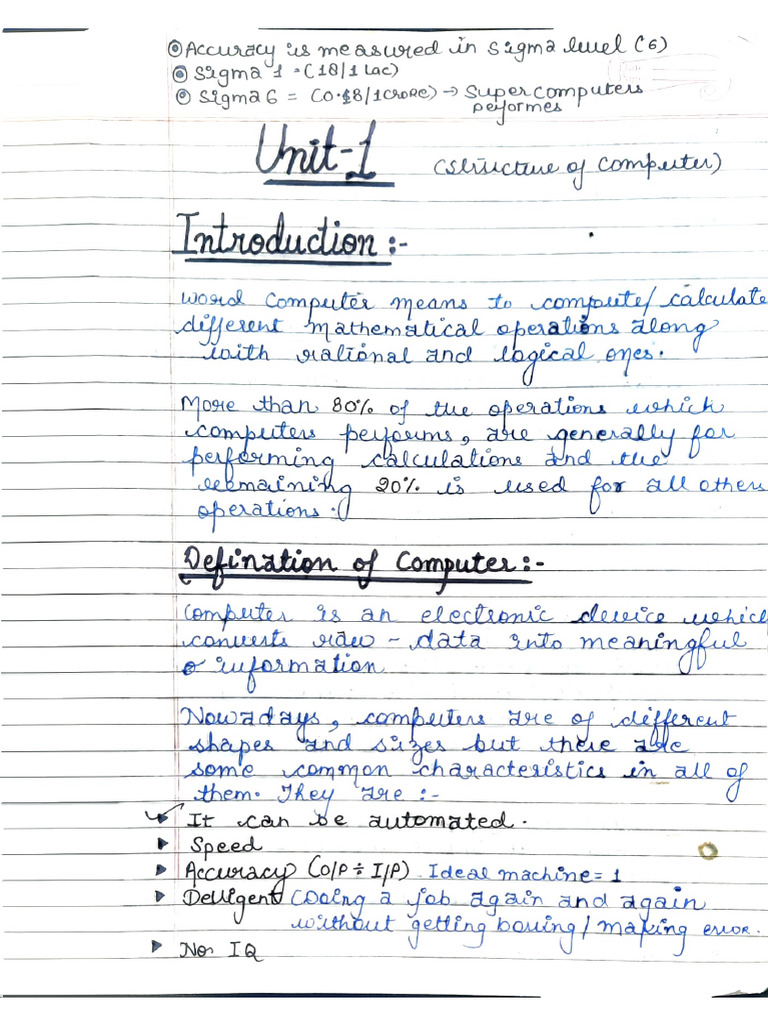 Accuracy is measured in Sigma level (6)
Sigma 1 = (18/1 Lac)
Sigma 6 = (0.18/1 CRORE) → Supercomputers performes
Unit-1 (Structure of Computer)
Introduction :-
Word Computer means to compute/calculate
different mathematical operations along
with rational and logical ones.
More than 80% of the operations which
computers performs, are generally for
performing calculations and the
remaining 20% is used for all others
operations.
Defination of Computer :-
Computer is an electronic device which
converts raw-data into meaningful
information
Nowadays, computers are of different
shapes and sizes but there are
some common characteristics in all of
them. They are :-
It can be automated.
Speed
Accuracy (O/P ÷ I/P) Ideal machine = 1
Delligent (Doing a job again and again
without getting boring/making error.
No IQ